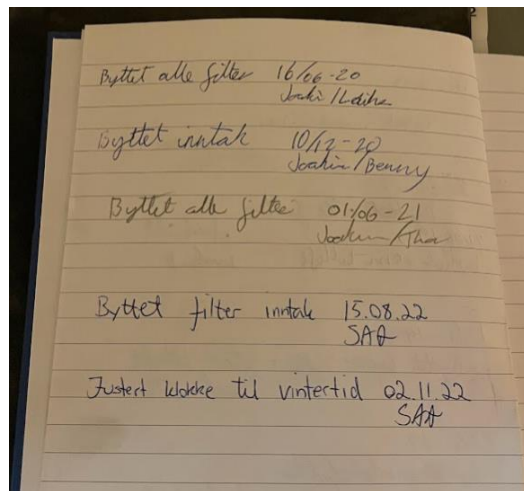 Byttet alle filter 16/06-20
Joaki /
Byttet inntak 10/12-20
Joakim/Benny
Byttet alle filter 01/06-21
Joakim/
Byttet filter inntak 15.08.22
SAA
Justert klokke til vintertid 02.11.22
SAA